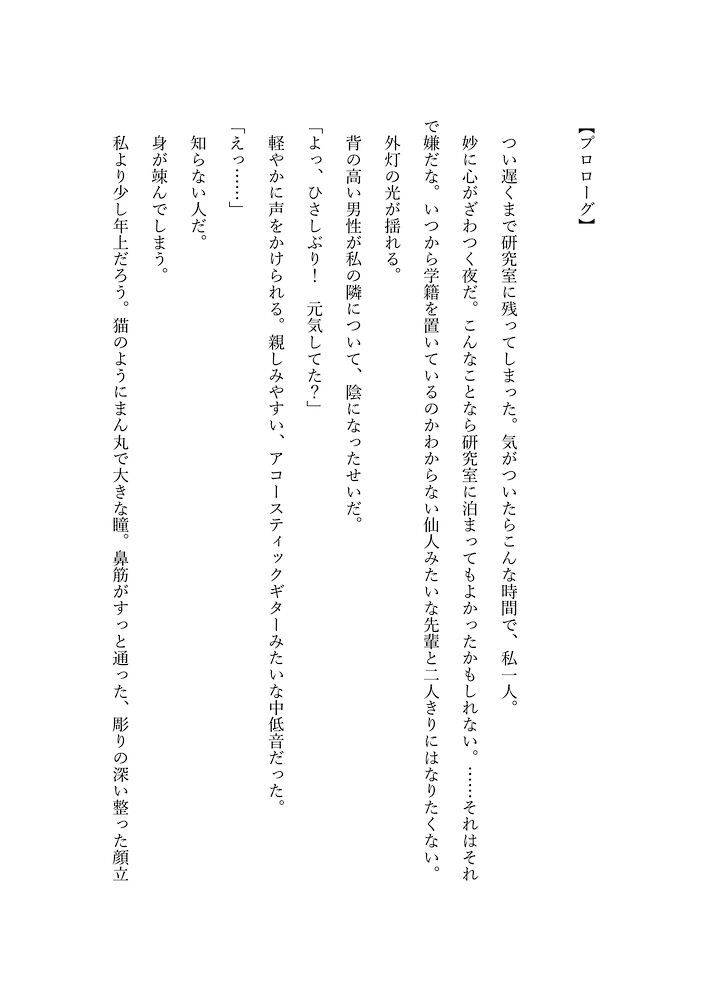 【プロローグ】
　つい遅くまで研究室に残ってしまった。気がついたらこんな時間で、私一人。
　妙に心がざわつく夜だ。こんなことなら研究室に泊まってもよかったかもしれない。……それはそれ
で嫌だな。いつから学籍を置いているのかわからない仙人みたいな先輩と二人きりにはなりたくない。
　外灯の光が揺れる。
　背の高い男性が私の隣について、陰になったせいだ。
「よっ、ひさしぶり！　元気してた？」
　軽やかに声をかけられる。親しみやすい、アコースティックギターみたいな中低音だった。
「えっ……」
　知らない人だ。
　身が竦んでしまう。
　私より少し年上だろう。猫のようにまん丸で大きな瞳。鼻筋がすっと通った、彫りの深い整った顔立